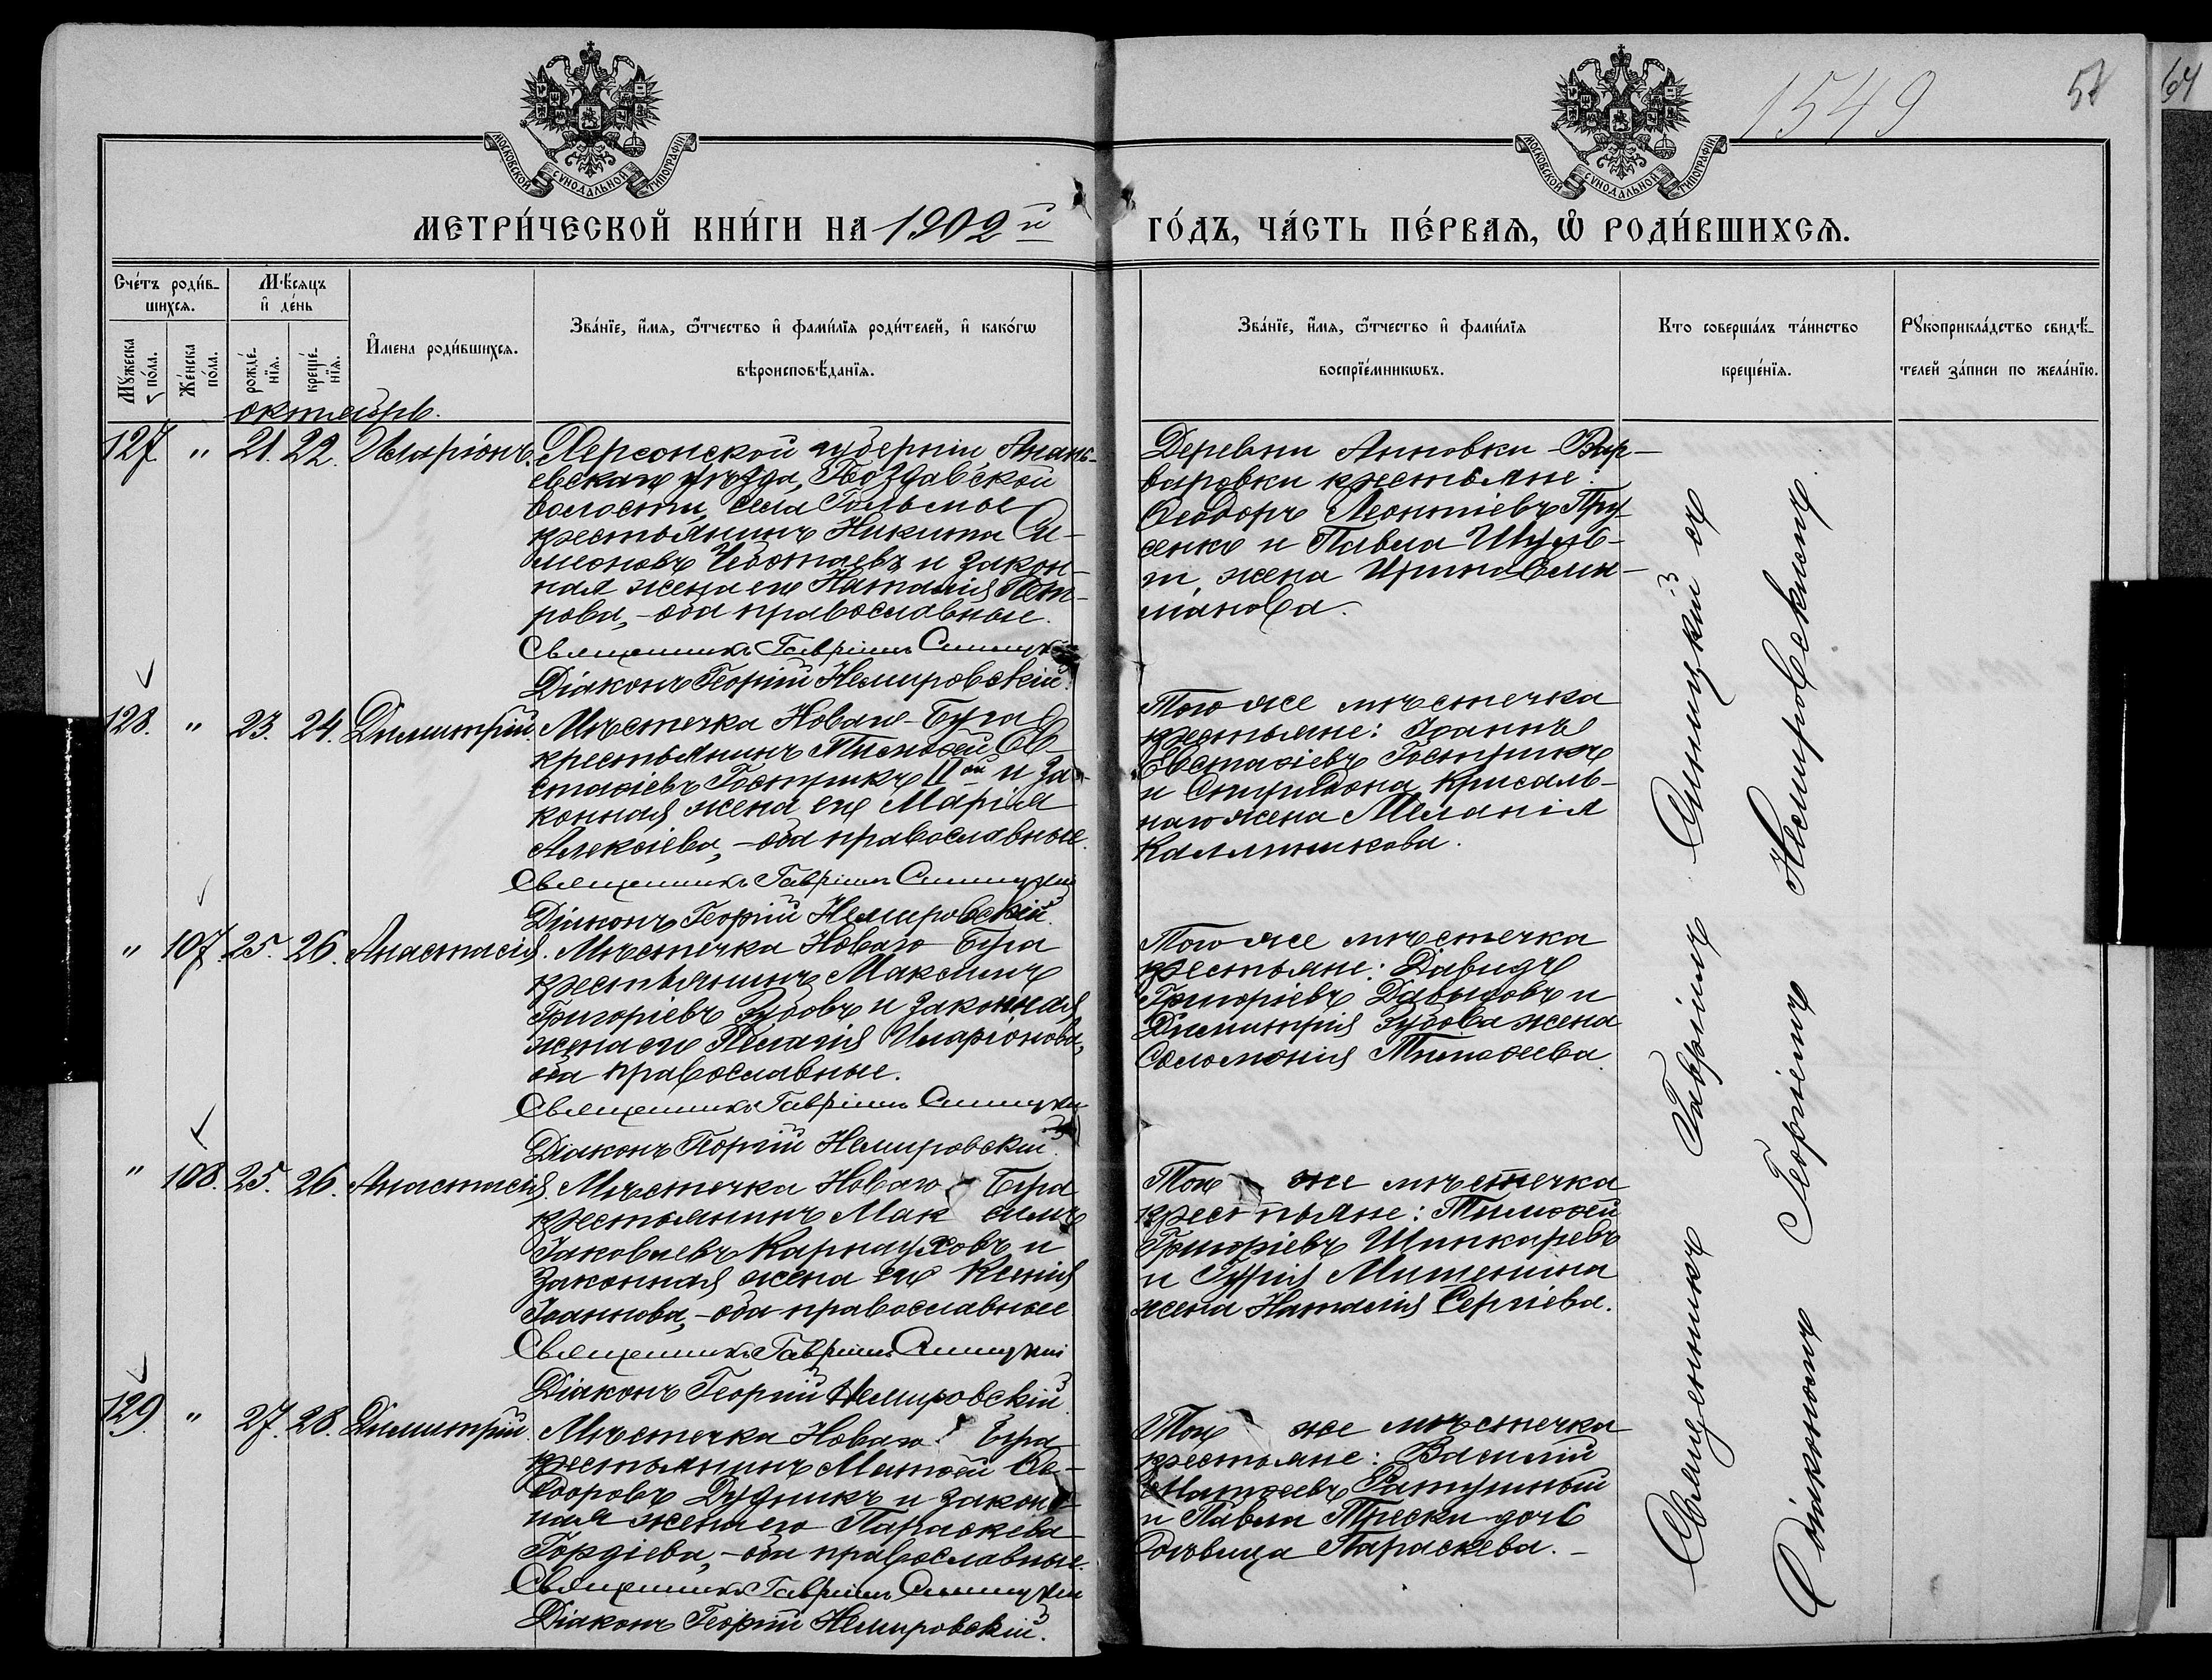 1549
57
64
МОСКОВСКОЙ СѴНОДАЛЬНОЙ ТИПОГРАФІИ
МОСКОВСКОЙ СѴНОДАЛЬНОЙ ТИПОГРАФІИ
МЕТРИ́ЧЕСКОЙ КНИ́ГИ НА 1902й ГО́ДЪ, ЧА́СТЬ ПЕ́РВАѦ, Ѡ҆ РОДИ́ВШИХСѦ.
Сче́тъ роди́в-
шихсѧ.
Мꙋжеска по́ла.
Же́нска по́ла.
Мѣсѧцъ
и҆ де́нь
рожде́-
нїѧ.
креще́-
нїѧ.
И҆мена роди́вшихсѧ.
Зва́нїе, и҆́мѧ, ѻ҆́тчество и҆ фами́лїѧ роди́телей, и҆ како́гѡ
вѣроисповѣ́данїѧ.
Зва́нїе, и҆́мѧ, ѻ҆́тчество и҆ фами́лїѧ
воспрїе́мникѡвъ.
Кто соверша́лъ та́инство
креще́нїѧ.
Рꙋкоприкла́дство свидѣ́-
телей за́писи по жела́нїю.
октябрь.
127 " 21. 22. Иларіонъ. Херсонской губерніи Анань-
евскаго уѣзда,
волости, села Гольмы
крестьянинъ Никита Си-
меоновъ Чеботаевъ и закон-
ная жена его Наталія Пет-
рова, - оба православные.
Священникъ Гавріилъ Синицкій
Діаконъ Георгій Немировскій.
Деревни Анновки-Вар-
варовки крестьяне:
Ѳеодоръ Леонтіевъ Пру-
сенко и Павла
жена Ирина Еми-
ліанова.
128. " 23. 24. Димитрій. Мѣстечка Новаго-Буга
крестьянинъ Тимоѳей Ев-
стаѳіевъ Гострикъ IIой и за-
конная жена его Марія
Алексіева, - оба православные.
Священникъ Гавріилъ Синицкій
Діаконъ Георгій Немировскій.
Того же мѣстечка
крестьяне: Іоаннъ
Евстаѳіевъ Гострикъ
и Спиридона Крисаль-
наго жена Меланія
Каллиникова.
" 107. 25. 26. Анастасія. Мѣстечка Новаго Буга
крестьянинъ Максимъ
Григоріевъ Зубовъ и законная
жена его Пелагія Иларіонова,
оба православные.
Священникъ Гавріилъ Синицкій
Діаконъ Георгій Немировскій.
Того же мѣстечка
крестьяне: Давидъ
Григоріевъ Давыдовъ и
Димитрія Зубова жена
Соломонія Тимоѳеева.
" 108. 25. 26. Анастасія. Мѣстечка Новаго Буга
крестьянинъ Максимъ
Іаковлевъ Карнауховъ и
законная жена его Ксенія
Іоаннова, - оба православные
Священникъ Гавріилъ Синицкій
Діаконъ Георгій Немировскій.
Того же мѣстечка
крестьяне: Тимоѳей
Григоріевъ Шинкаревъ
и Гурія Митенина
жена Наталія Сергіева.
129. " 27. 28. Димитрій. Мѣстечка Новаго Буга
крестьянинъ Матѳей Ѳе-
одоровъ Дудникъ и закон-
ная жена его Параскева
Гордіева, - оба православные.
Священникъ Гавріилъ Синицкій
Діаконъ Георгій Немировскій.
Того же мѣстечка
крестьяне: Василій
Матѳеевъ Ратушный
и Павла Трески дочь
дѣвица Параскева. -
Священникъ Гавріилъ Синицкій съ
Діакономъ Георгіемъ Немировскимъ.